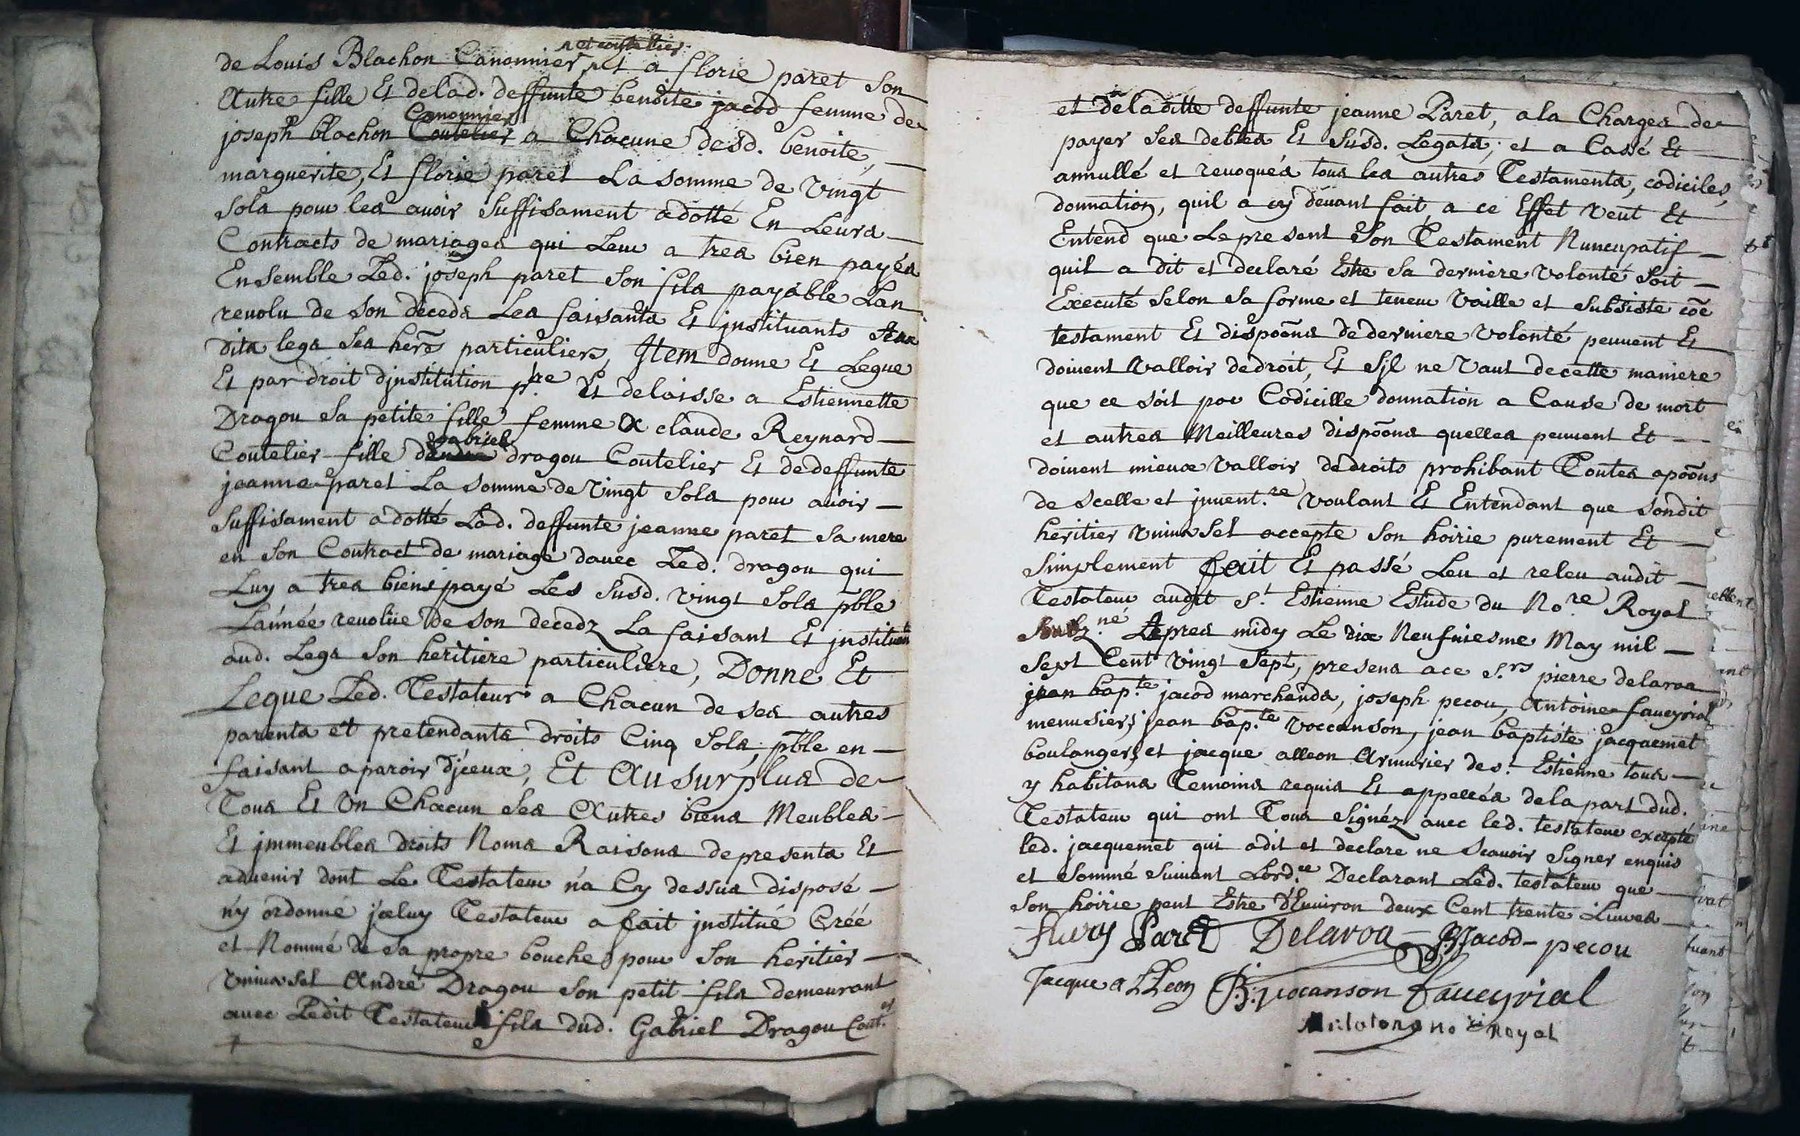 de Louis Blachon Canonnier et a florie paret son
autre fille Et delad. deffunte benoite jacod femme de
Canonnier
joseph blachon Coutelier a Chacune desd. benoite,
marguerite, Et florie paret La somme de vingt
sols pour les avoir suffisament adotté En Leurs
Contracts de mariages qui Leur a tres bien payés
Ensemble Led. joseph paret son fils payable Lan
revolu de son deceds Les faisants Et jnstituants
dits legs ses hers particuliers, Jtem donne Et Legue
Et par droit djnstitution p.re Et delaisse a Estiennette
Dragou sa petite fille femme a claude Reynard
gabriel
Coutelier fille de dragou Coutelier Et de deffunte
jeanne paret La somme de vingt sols pour avoir
suffisament adotté Lad. deffunte jeanne paret sa mere
en son Contract de mariage davec Led. dragou qui
Luy a tres biens payé Les susd. vingt sols pble
Lánnée revolüe de son decedz La faisant Et jnstituant
aud. Legs son heritiere particuliere, Donne Et
Legue Led. Testateur a Chacun de ses autres
parents et pretendants droits Cinq sols pble en
faisant aparoir djceux, Et Au surplus de
Tous Et Vn Chacun ses Autres biens Meubles
Et jmmeubles droits Noms Raisons de presents Et
advenir dont Le Testateur n'a Cy dessus disposé
n'y ordonné jceluy Testateur a fait jnstitué Créé
et Nommé de sa propre bouche pour son heritier
vniversel André Dragou son petit fils demeurant
avec Ledit Testateur fils dud. Gabriel Dragou Cout.er
et deladitte deffunte jeanne Paret, a la Charges de
payer ses debtes Et susd. Legats; et a Cassé Et
annullé et revoqués tous les autres Testaments, codiciles,
donnation, quil a cy devant fait, a ce Effet veut Et
Entend que Le present son Testament Nuncupatif
quil a dit et declaré Estre sa derniere volonté soit
Executé selon sa forme et teneur vaille et subsiste cõe
testament Et dispõons de derniere volonté peuvent Et
doivent valloir de droit, Et sjl ne vaut de cette maniere
que ce soit par Codicille donnation a Cause de mort
et autres Meilleures dispõons quelles peuvent Et
doivent mieux valloir de droits prohibant Toutes apõons
de scelle et jnvent.re voulant Et Entendant que sondit
heritier vniversel accepte son hoirie purement Et
simplement fait Et passé Leu et releu audit
Testateur audit S.t Estienne Estude du No.re Royal
soubz.né Apres midy Le dix Neufuiesme May mil
sept Cent vingt sept, presens a ce S.rs pierre delaroa
jean bap.te jacod marchands, joseph pecou, Antoine faucyrial
menusiers, jean bap.te voccanson, jean baptiste jacquemet
boulangers et jacque alleon Armurier de S.t Estienne tous
y habitans Temoins requis Et appellés de la part dud.
Testateur qui ont Tous signéz avec led. testateur excepté
led. jacquemet qui a dit et declare ne scavoir signer enquis
et sommé suivant Lord.ce Declarant Led. testateur que
son hoirie peut Estre d'Environ deux Cent trente Livres
flury Paret Delaroa BJacod pecou
Jacque alleon J:B:vocanson faucyrial
no.re Royal